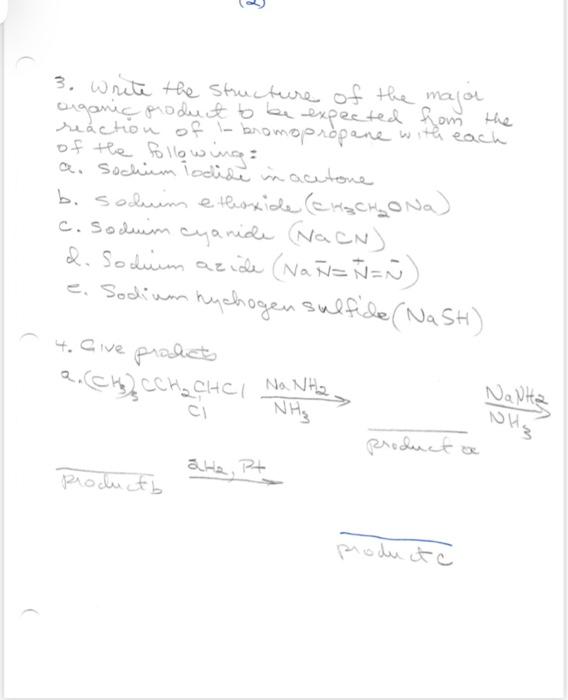 (2)
3. Write the structure of the major
organic product to be expected from the
reaction of 1-bromopropane with each
of the following:
a. Sodium iodide in acetone
b. sodium ethoxide (CH3CH2ONa)
c. Sodium cyanide (NaCN)
d. Sodium azide (Na N̄=N⁺=N̄)
e. Sodium hydrogen sulfide (NaSH)
4. Give products
a. (CH3)3CCH2CHCl NaNH2 NaNH2
Cl NH3 NH3
product a
product b 2H2, Pt
product c